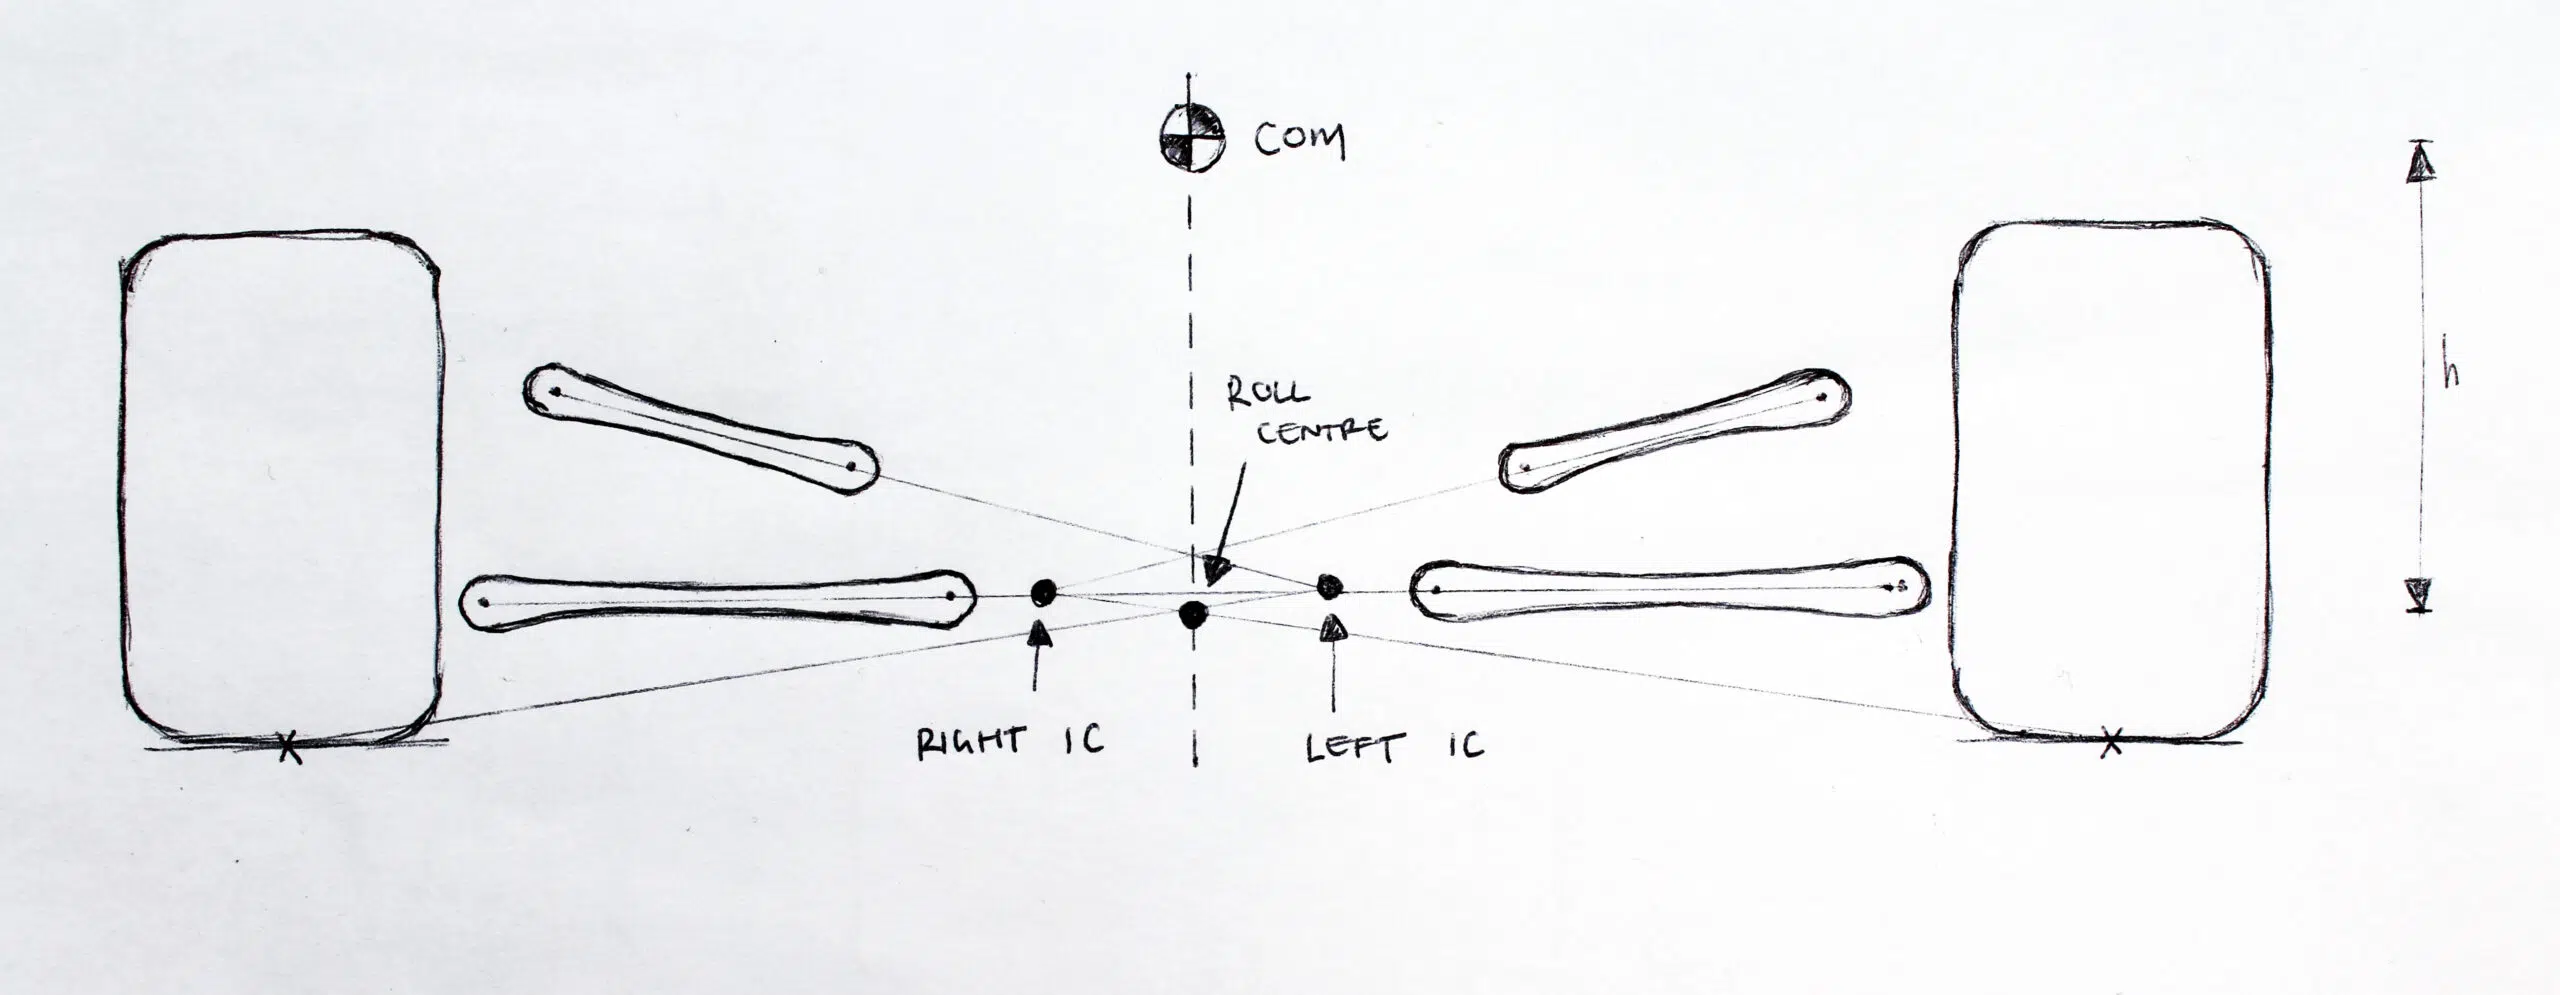 COM
h
ROLL
CENTRE
RIGHT IC
LEFT IC